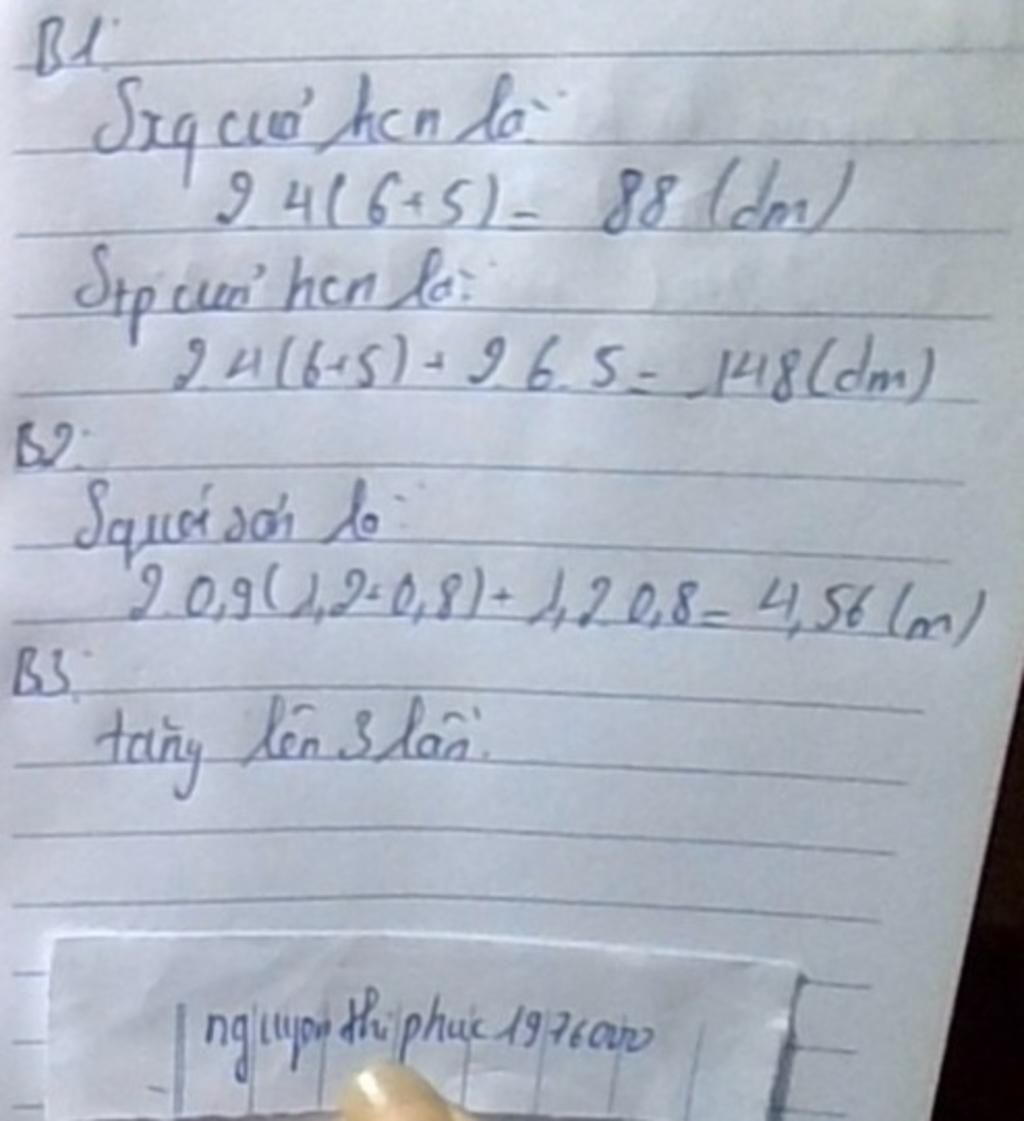 B1:
Sxq của hcn là:
2.4(6+5)= 88 (dm)
Stp của hcn là:
2.4(6+5)+2.6.5= 148(dm)
B2:
S quét sơn là:
2.0,9(1,2+0,8)+1,2.0,8= 4,56(m)
B3:
tăng lên 3 lần.
nguyen thi phuc 1976